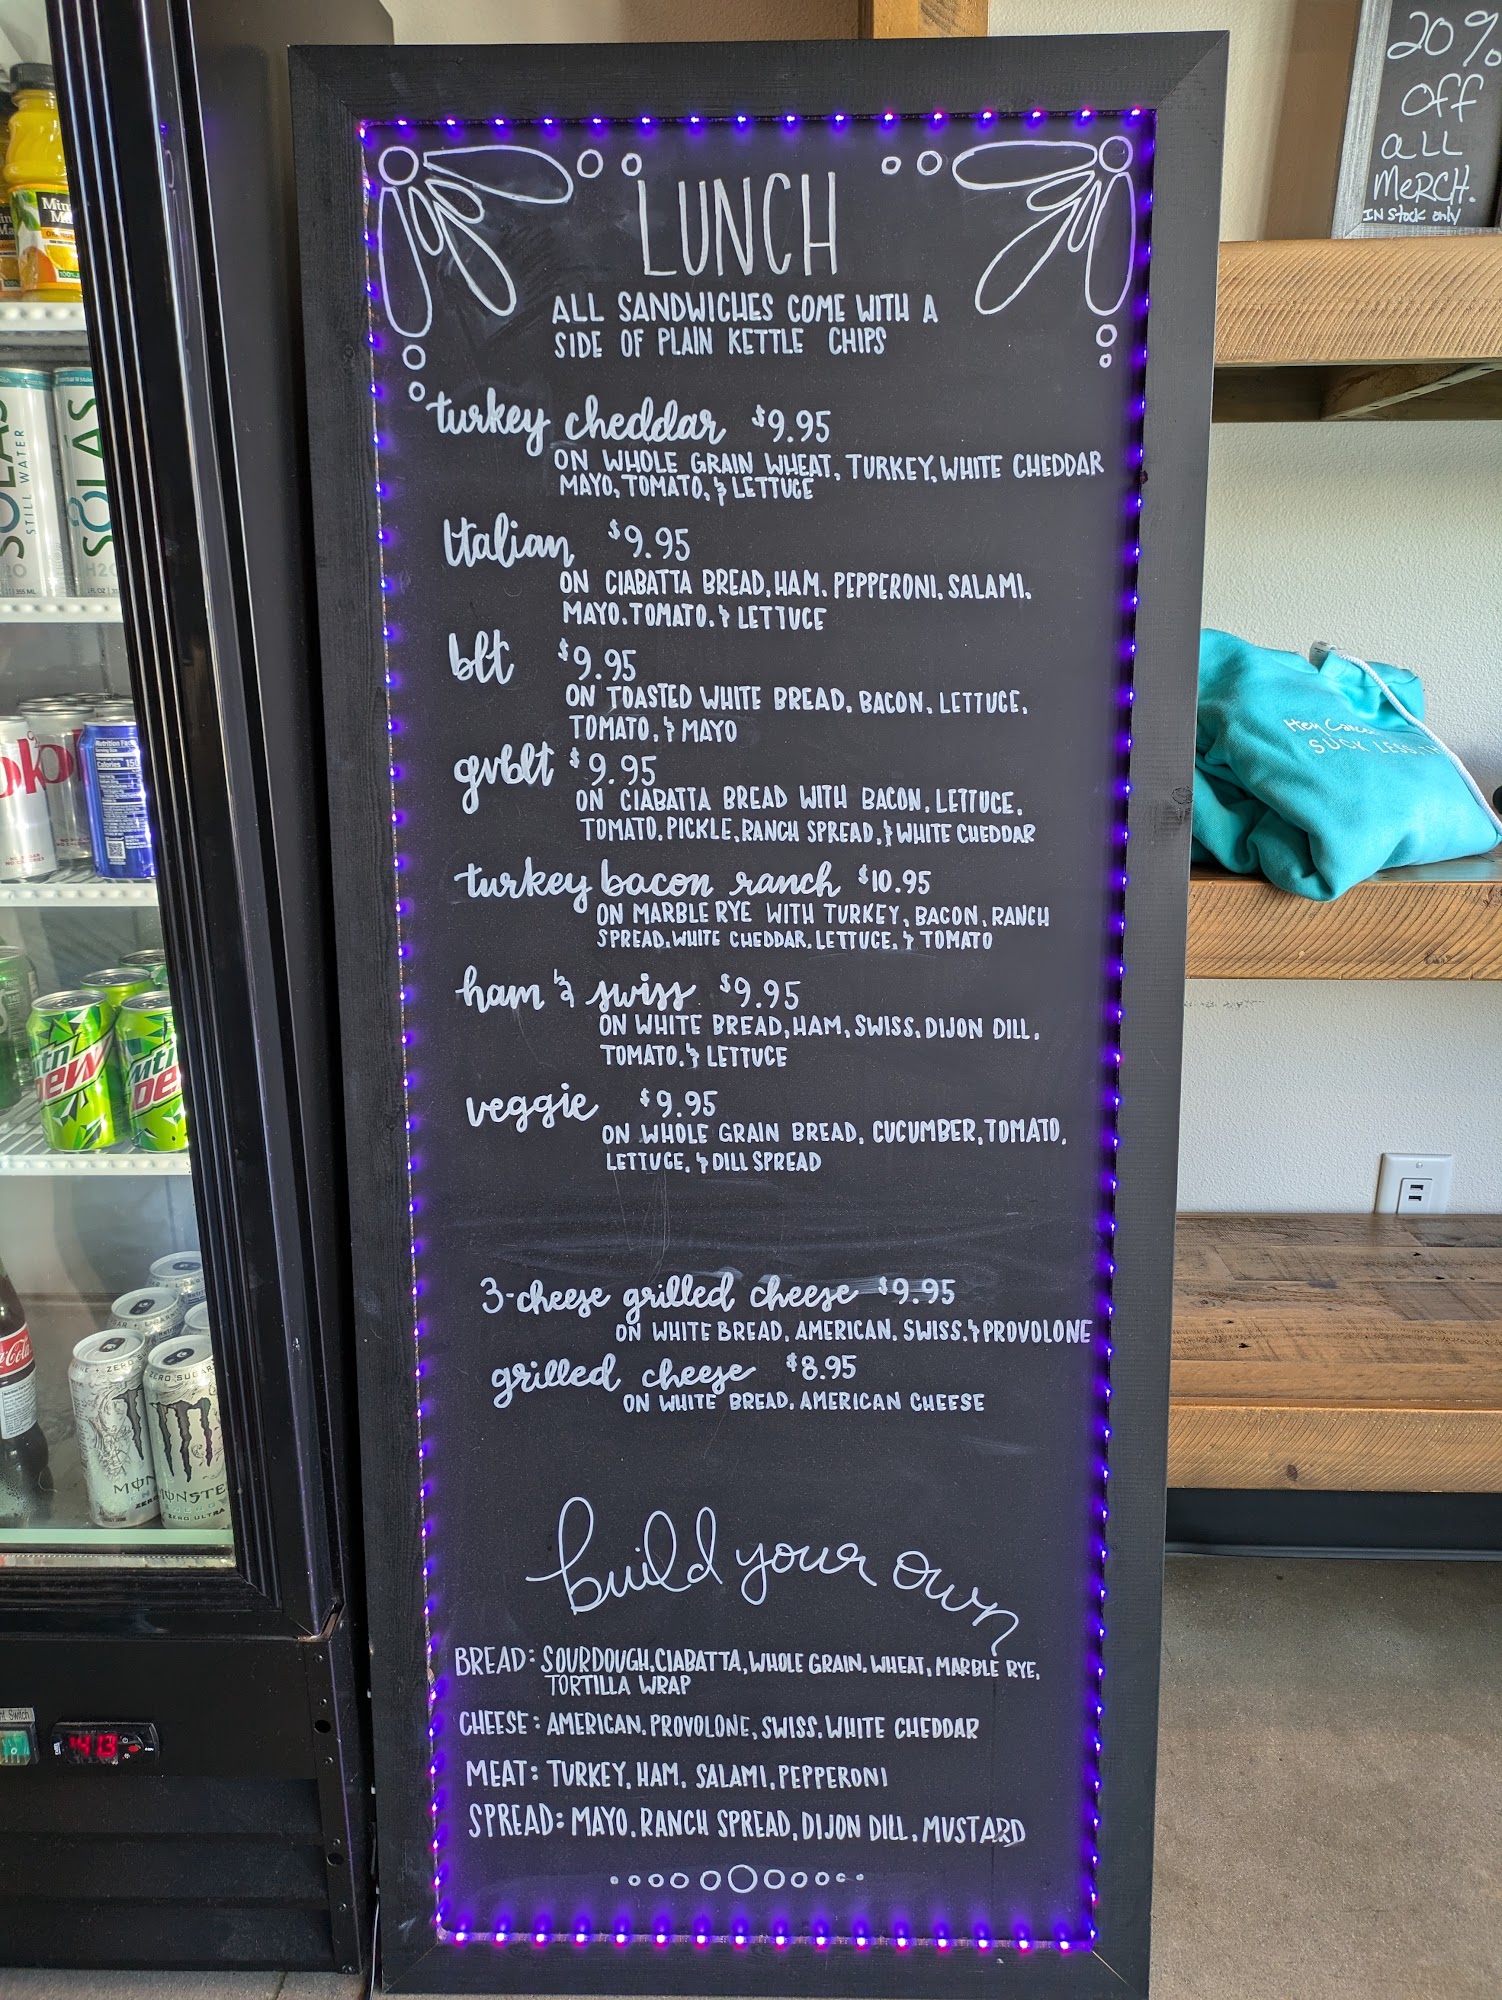 LUNCH
ALL SANDWICHES COME WITH A
SIDE OF PLAIN KETTLE CHIPS
turkey cheddar $9.95
ON WHOLE GRAIN WHEAT, TURKEY, WHITE CHEDDAR
MAYO, TOMATO, & LETTUCE
Italian $9.95
ON CIABATTA BREAD, HAM, PEPPERONI, SALAMI,
MAYO, TOMATO, & LETTUCE
blt $9.95
ON TOASTED WHITE BREAD, BACON, LETTUCE,
TOMATO, & MAYO
gvblt $9.95
ON CIABATTA BREAD WITH BACON, LETTUCE,
TOMATO, PICKLE, RANCH SPREAD, & WHITE CHEDDAR
turkey bacon ranch $10.95
ON MARBLE RYE WITH TURKEY, BACON, RANCH
SPREAD, WHITE CHEDDAR, LETTUCE, & TOMATO
ham & swiss $9.95
ON WHITE BREAD, HAM, SWISS, DIJON DILL,
TOMATO, & LETTUCE
veggie $9.95
ON WHOLE GRAIN BREAD, CUCUMBER, TOMATO,
LETTUCE, & DILL SPREAD
3-cheese grilled cheese $9.95
ON WHITE BREAD, AMERICAN, SWISS, & PROVOLONE
grilled cheese $8.95
ON WHITE BREAD, AMERICAN CHEESE
build your own
BREAD: SOURDOUGH, CIABATTA, WHOLE GRAIN, WHEAT, MARBLE RYE,
TORTILLA WRAP
CHEESE: AMERICAN, PROVOLONE, SWISS, WHITE CHEDDAR
MEAT: TURKEY, HAM, SALAMI, PEPPERONI
SPREAD: MAYO, RANCH SPREAD, DIJON DILL, MUSTARD
20%
Off
aLL
MeRCH.
IN Stock only
SUCK LESS
SOLAS
STILL WATER
SOLAS
H2O
Nutrition Facts
Calories 150
mtn
DEW
mtn
DE
Coca-Cola
MONSTE
ZERO ULTRA
Switch
41.3